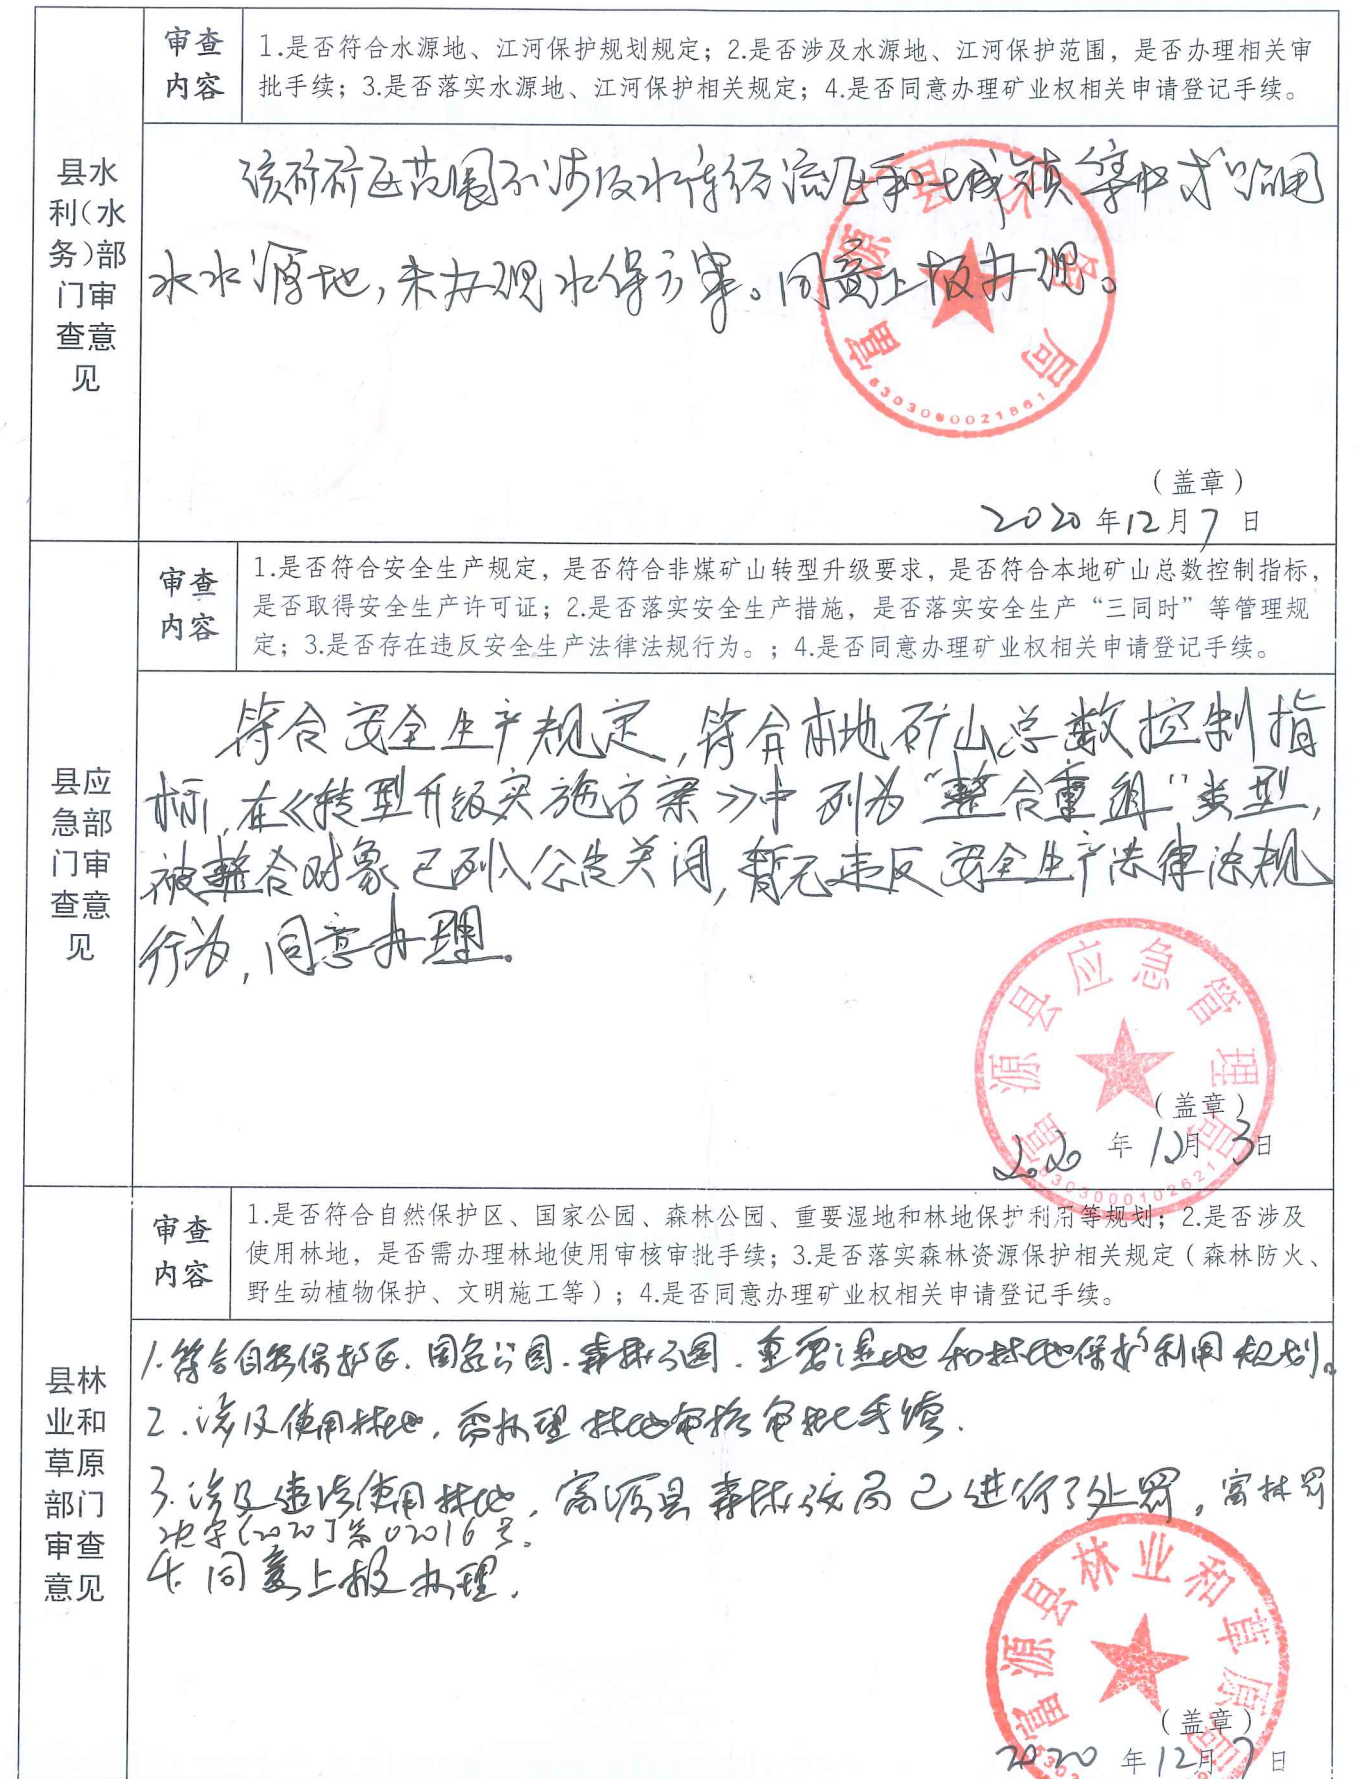 审查
内容
1.是否符合水源地、江河保护规划规定；2.是否涉及水源地、江河保护范围，是否办理相关审
批手续；3.是否落实水源地、江河保护相关规定；4.是否同意办理矿业权相关申请登记手续。
县水
利(水
务)部
门审
查意
见
该矿矿区范围不涉及水库径流区和城镇集中式饮用
水水源地，未办理水保方案。同意上报办理。
富源县水务局
5303000021861
（盖章）
2020年12月7日
审查
内容
1.是否符合安全生产规定，是否符合非煤矿山转型升级要求，是否符合本地矿山总数控制指标，
是否取得安全生产许可证；2.是否落实安全生产措施，是否落实安全生产“三同时”等管理规
定；3.是否存在违反安全生产法律法规行为。；4.是否同意办理矿业权相关申请登记手续。
县应
急部
门审
查意
见
符合安全生产规定，符合本地矿山总数控制指
标，在《转型升级实施方案》中列为“整合重组”类型，
被整合对象已列入公告关闭，暂无违反安全生产法律法规
行为，同意办理。
富源县应急管理局
5303000102621
（盖章）
2020年12月3日
审查
内容
1.是否符合自然保护区、国家公园、森林公园、重要湿地和林地保护利用等规划；2.是否涉及
使用林地，是否需办理林地使用审核审批手续；3.是否落实森林资源保护相关规定（森林防火、
野生动植物保护、文明施工等）；4.是否同意办理矿业权相关申请登记手续。
县林
业和
草原
部门
审查
意见
1.符合自然保护区、国家公园、森林公园、重要湿地和林地保护利用规划。
2.涉及使用林地，需办理林地审核审批手续.
3.涉及违法使用林地，富源县森林公安局已进行了处罚，富林罚
决字〔2020〕第02016号。
4.同意上报办理.
富源县林业和草原局
（盖章）
2020年12月7日